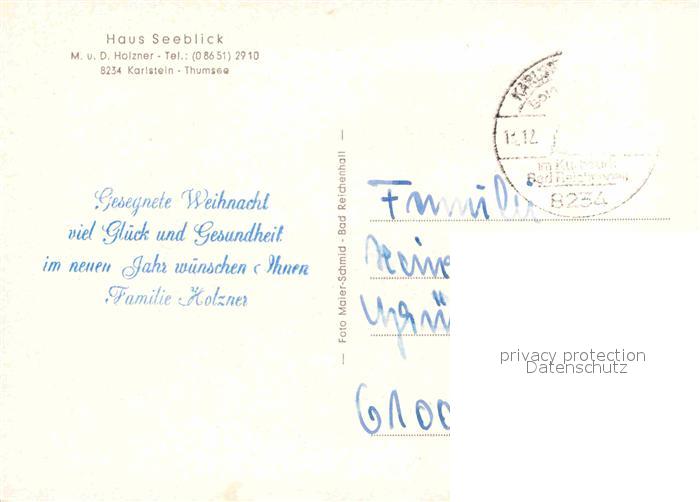 Haus Seeblick
M. u. D. Holzner - Tel.: (0 86 51) 29 10
8234 Karlstein - Thumsee
Gesegnete Weihnacht
viel Glück und Gesundheit
im neuen Jahr wünschen Ihnen
Familie Holzner
— Foto Maier-Schmid - Bad Reichenhall —
12
Bad Reichenhall
8234
Familie
privacy protection
Datenschutz